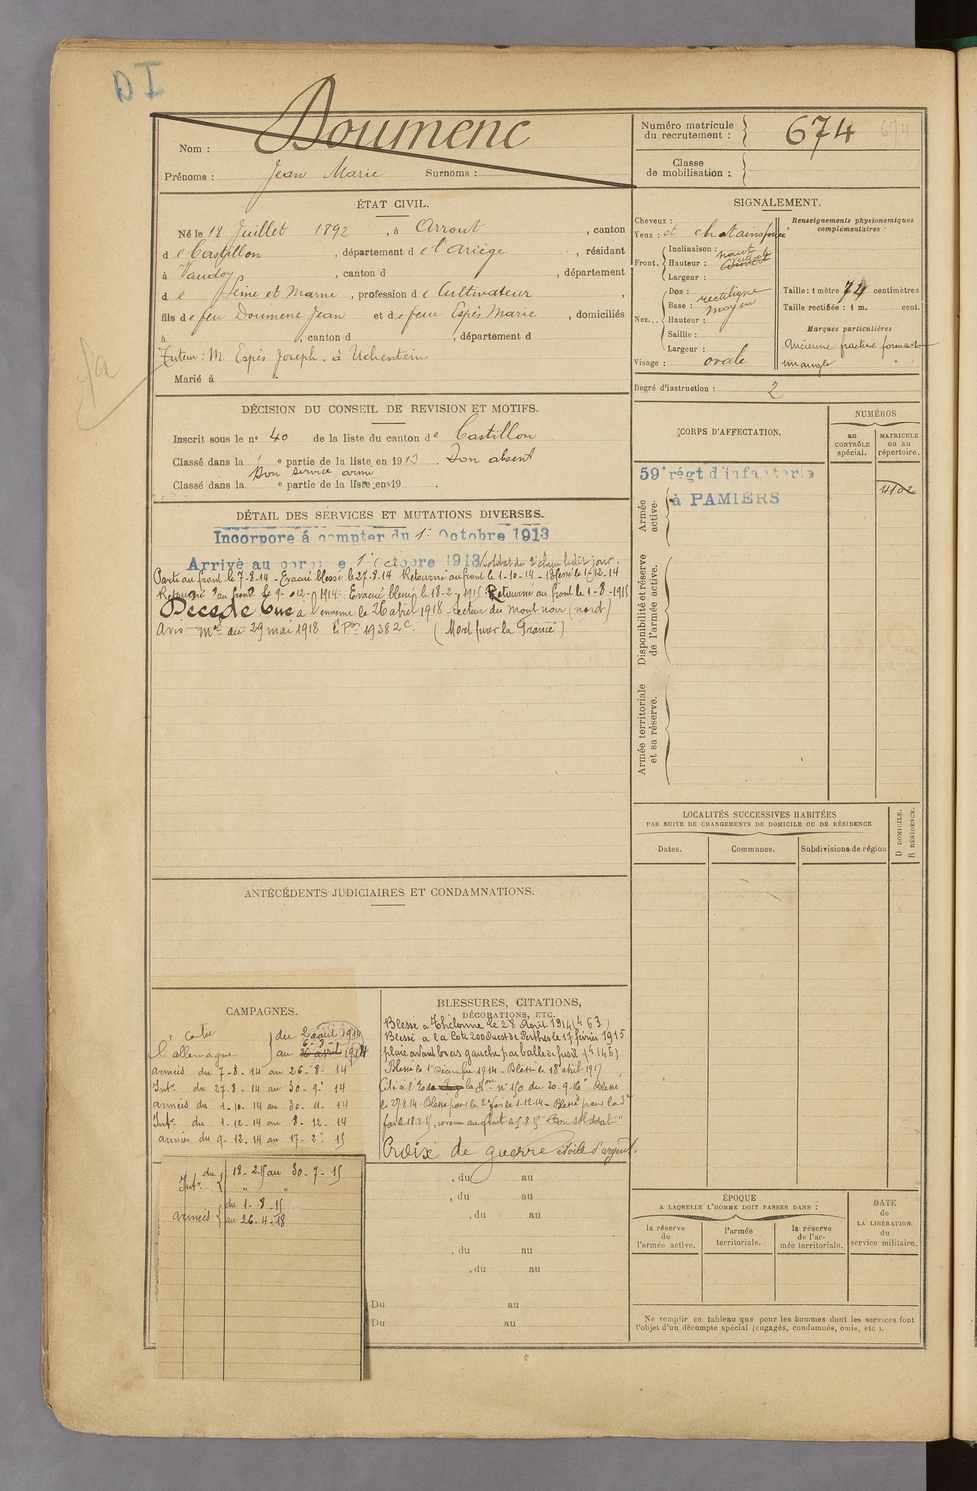 DI
Nom : Doumenc
Prénoms : Jean Marie Surnoms :
Numéro matricule du recrutement : 674 674
Classe de mobilisation :
ÉTAT CIVIL.
Né le 18 Juillet 1892 , à Arrout , canton
d e Castillon , département d e l'Ariège , résidant
à Vaudoy , canton d , département
d e Seine et Marne , profession d e Cultivateur
fils de feu Doumenc Jean et de feue Espès Marie , domiciliés
à , canton d , département d
Tuteur : M. Espès Joseph, à Uchentein
Marié à
SIGNALEMENT.
Cheveux :
Yeux : et chatains foncé
Front. Inclinaison : haut
Hauteur : verticale
Largeur :
Nez... Dos : rectiligne
Base : moyen
Hauteur :
Saillie :
Largeur :
Visage : ovale
Renseignements physionomiques complémentaires :
Taille : 1 mètre 74 centimètres
Taille rectifiée : 1 m. cent.
Marques particulières
Ancienne fracture formant
un angle
Degré d'instruction : 2
DÉCISION DU CONSEIL DE REVISION ET MOTIFS.
Inscrit sous le n° 40 de la liste du canton de Castillon
Classé dans la 1 e partie de la liste en 1913 . Bon absent
Bon service armé
Classé dans la e partie de la liste en 19 .
CORPS D'AFFECTATION.
NUMÉROS
au CONTRÔLE spécial.
MATRICULE ou au répertoire.
Armée active.
59e régt d'infanterie
à PAMIERS
4102
Disponibilité et réserve de l'armée active.
Armée territoriale et sa réserve.
DÉTAIL DES SERVICES ET MUTATIONS DIVERSES.
Incorporé à compter du 1er Octobre 1913
Arrivé au corps le 1er Octobre 1913 soldat de 2e classe ledit jour.
Parti au front le 7-8-14 - Evacué blessé le 27-8-14 Retourné au front le 1-10-14 - Blessé le 1-12-14
Retourné au front le 9-12-1914. Evacué blessé le 18-2-1915 Retourné au front le 1-8-1915
Décédé tué à l'ennemi le 26 avril 1918 secteur du mont noir (nord)
Avis Mel du 29 mai 1918 19382 (Mort pour la France)
ANTÉCÉDENTS JUDICIAIRES ET CONDAMNATIONS.
LOCALITÉS SUCCESSIVES HABITÉES
PAR SUITE DE CHANGEMENTS DE DOMICILE OU DE RÉSIDENCE
Dates. Communes. Subdivisions de région
D DOMICILE.
R RÉSIDENCE.
CAMPAGNES.
contre du 2 août 1914
l'allemagne au 26 avril
armées du 7-8-14 au 26-8-14
Intr. du 27.8-14 au 30-9-14
armées du 1-10-14 au 30-11-14
Intr. du 1-12-14 au 8-12-14
armées du 9-12.14 au 17-2-15
Intr. du 18-2-15 au 30-7-15
armées du 1-8-15
au 26-4-18
BLESSURES, CITATIONS,
DÉCORATIONS, ETC.
Blessé à Thélonne le 28 Août 1914 (463)
Blessé à la Cote 200 Ouest de Perthes le 17 février 1915
plaie avant bras gauche par balle de fusil
Blessé le 1er Décembre 1914 - Blessé le 18 avril 1917
Cité à l'ordre n° 150 du 30-9-16 Blessé
le 27.8.14 Blessé pour la 2e fois le 1-12-14 - Blessé pour la 3e
fois le 18-2-15, revenu au front
Croix de guerre étoile d'argent.
, du au
, du au
, du au
, du au
, du au
Du au
Du au
ÉPOQUE
A LAQUELLE L'HOMME DOIT PASSER DANS :
la réserve de l'armée active.
l'armée territoriale.
la réserve de l'armée territoriale.
DATE de LA LIBÉRATION du service militaire.
Ne remplir ce tableau que pour les hommes dont les services font
l'objet d'un décompte spécial (engagés, condamnés, omis, etc.).